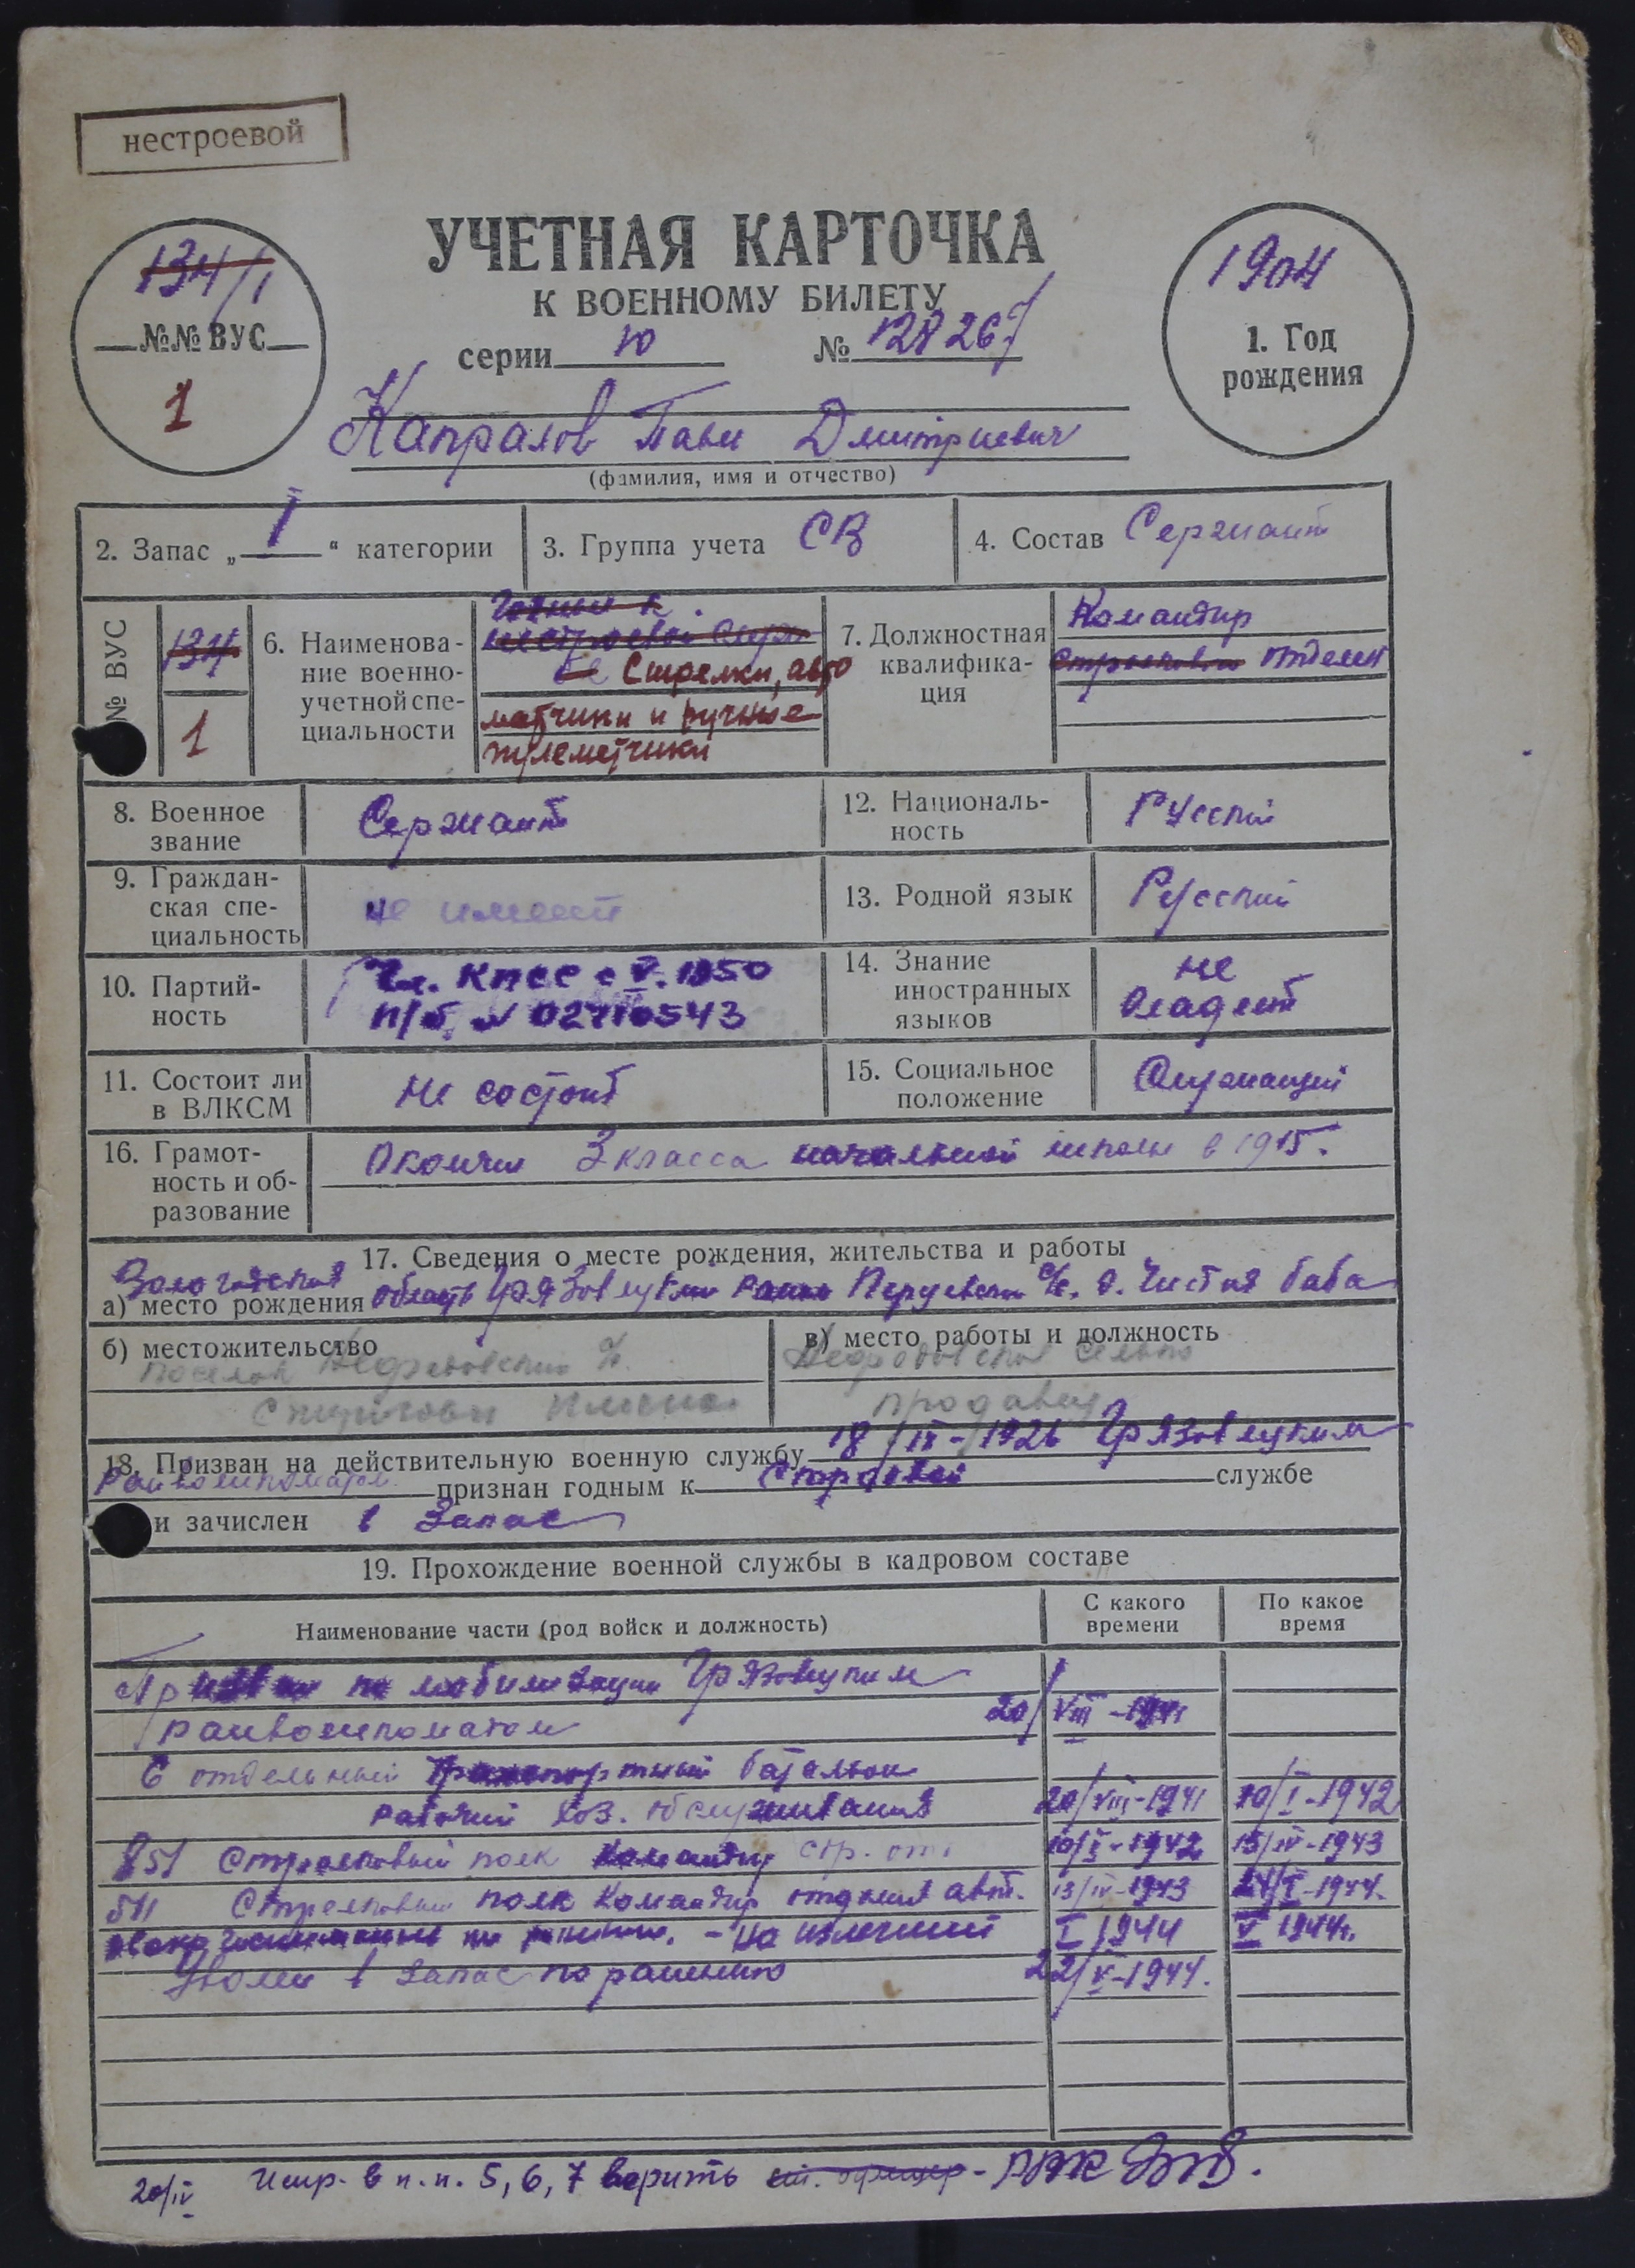 нестроевой
134/1
№№ ВУС
1
УЧЕТНАЯ КАРТОЧКА
К ВОЕННОМУ БИЛЕТУ
серии Ю № 128267
1904
1. Год
рождения
Капралов Павел Дмитриевич
(фамилия, имя и отчество)
2. Запас „ I “ категории
3. Группа учета СВ
4. Состав Сержант
№ ВУС
134
1
6. Наименова-
ние военно-
учетной спе-
циальности
Годный к
нестроевой служ
бе Стрелки, авто
матчики и ручные
пулеметчики
7. Должностная
квалифика-
ция
Командир
стрелковый отделен
8. Военное
звание
Сержант
12. Националь-
ность
Русский
9. Граждан-
ская спе-
циальность
не имеет
13. Родной язык
Русский
10. Партий-
ность
Чл. КПСС с V. 1950
п/б № 02710543
14. Знание
иностранных
языков
не
владеет
11. Состоит ли
в ВЛКСМ
не состоит
15. Социальное
положение
Служащий
16. Грамот-
ность и об-
разование
Окончил 3 класса начальной школы в 1915.
17. Сведения о месте рождения, жительства и работы
Вологодская
а) место рождения область Грязовецкий район Перцевский с/с. д. Чистая баба
б) местожительство
поселок с/с.
в) место работы и должность
сельпо
продавец
18. Призван на действительную военную службу 18/IX-1926 Грязовецким
райвоенкоматом признан годным к строевой службе
и зачислен в запас
19. Прохождение военной службы в кадровом составе
Наименование части (род войск и должность)
С какого
времени
По какое
время
Призван по мобилизации Грязовецким
райвоенкоматом 20/VIII-1941
6 отдельный транспортный батальон
рабочий хоз. обслуживания 20/VIII-1941 10/I-1942
851 Стрелковый полк командир стр. отд 10/I-1942 13/IV-1943
511 Стрелковый полк командир отделения авт. 13/IV-1943 24/I-1944.
- на излечении I 1944 V 1944г.
Уволен в запас по ранению 22/V-1944.
20/IV Испр. в п.п. 5, 6, 7 верить